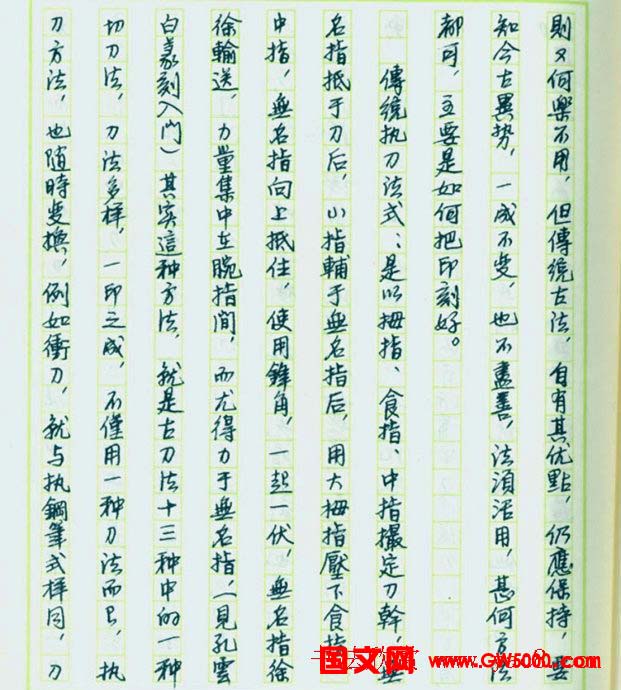 則又何樂不用，但傳統古法，自有其优點，仍應保持，要
知今古異势，一成不变，也不盡善，法須活用，甚何方法
都可，主要是如何把印刻好。
傳统执刀法式：是以拇指、食指、中指撮定刀幹，無
名指抵于刀后，小指輔于無名指后，用大拇指壓下食指
中指，無名指向上抵住，使用鋒角，一起一伏，無名指徐
徐輸送，力量集中在腕指间，而尤得力于無名指，（見孔雲
白篆刻入门）其实這种方法，就是古刀法十三种中的一种
切刀法，刀法多样，一印之成，不僅用一种刀法而已，执
刀方法，也随時变换，例如衝刀，就与执鋼筆式样同，刀
国文网 www.GW5000.com